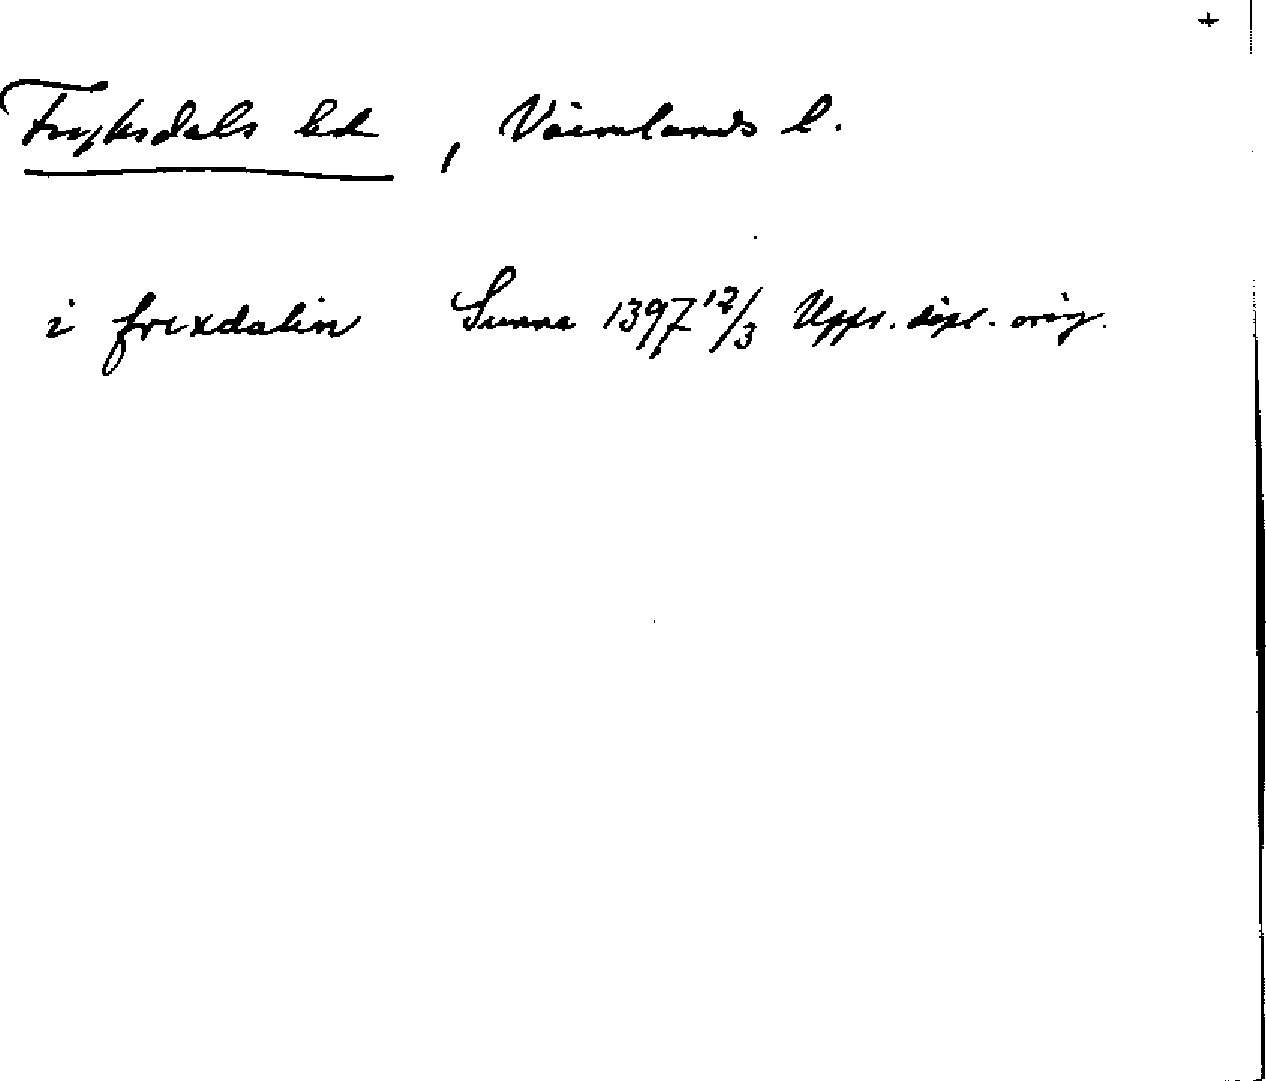 +
Fryksdals hd, Värmlands l.
i frixdalin Sunne 1397 12/3 Upps. dipl. orig.